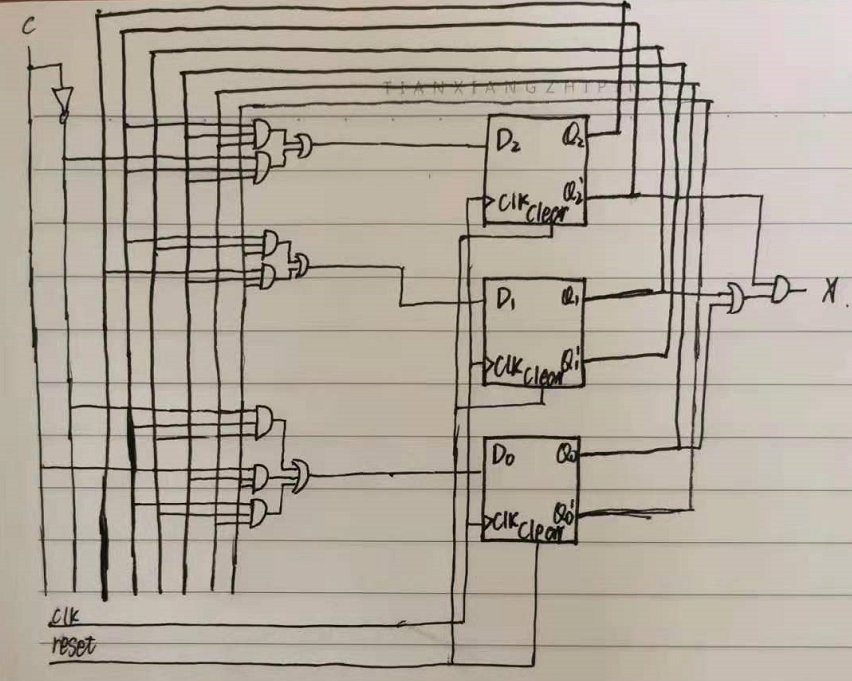 C
TIANXIANGZHIPIN
D₂ Q₂
Q₂'
Clk
Clear
D₁ Q₁
Q₁'
Clk
Clear
X
D₀ Q₀
Q₀'
Clk
Clear
Clk
reset